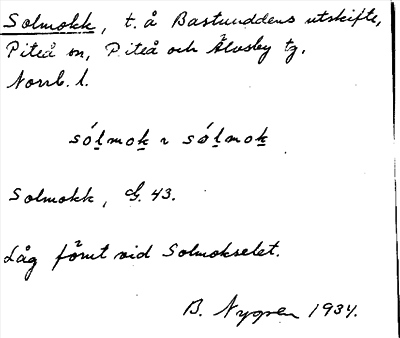 Solmokk, t. å Bastuuddens utskifte,
Piteå sn, Piteå och Älvsby tg.
Norrb. l.
sólmok ~ sólmok
Solmokk, 43.
Låg förut vid Solmokselet.
B. Nygren 1934.